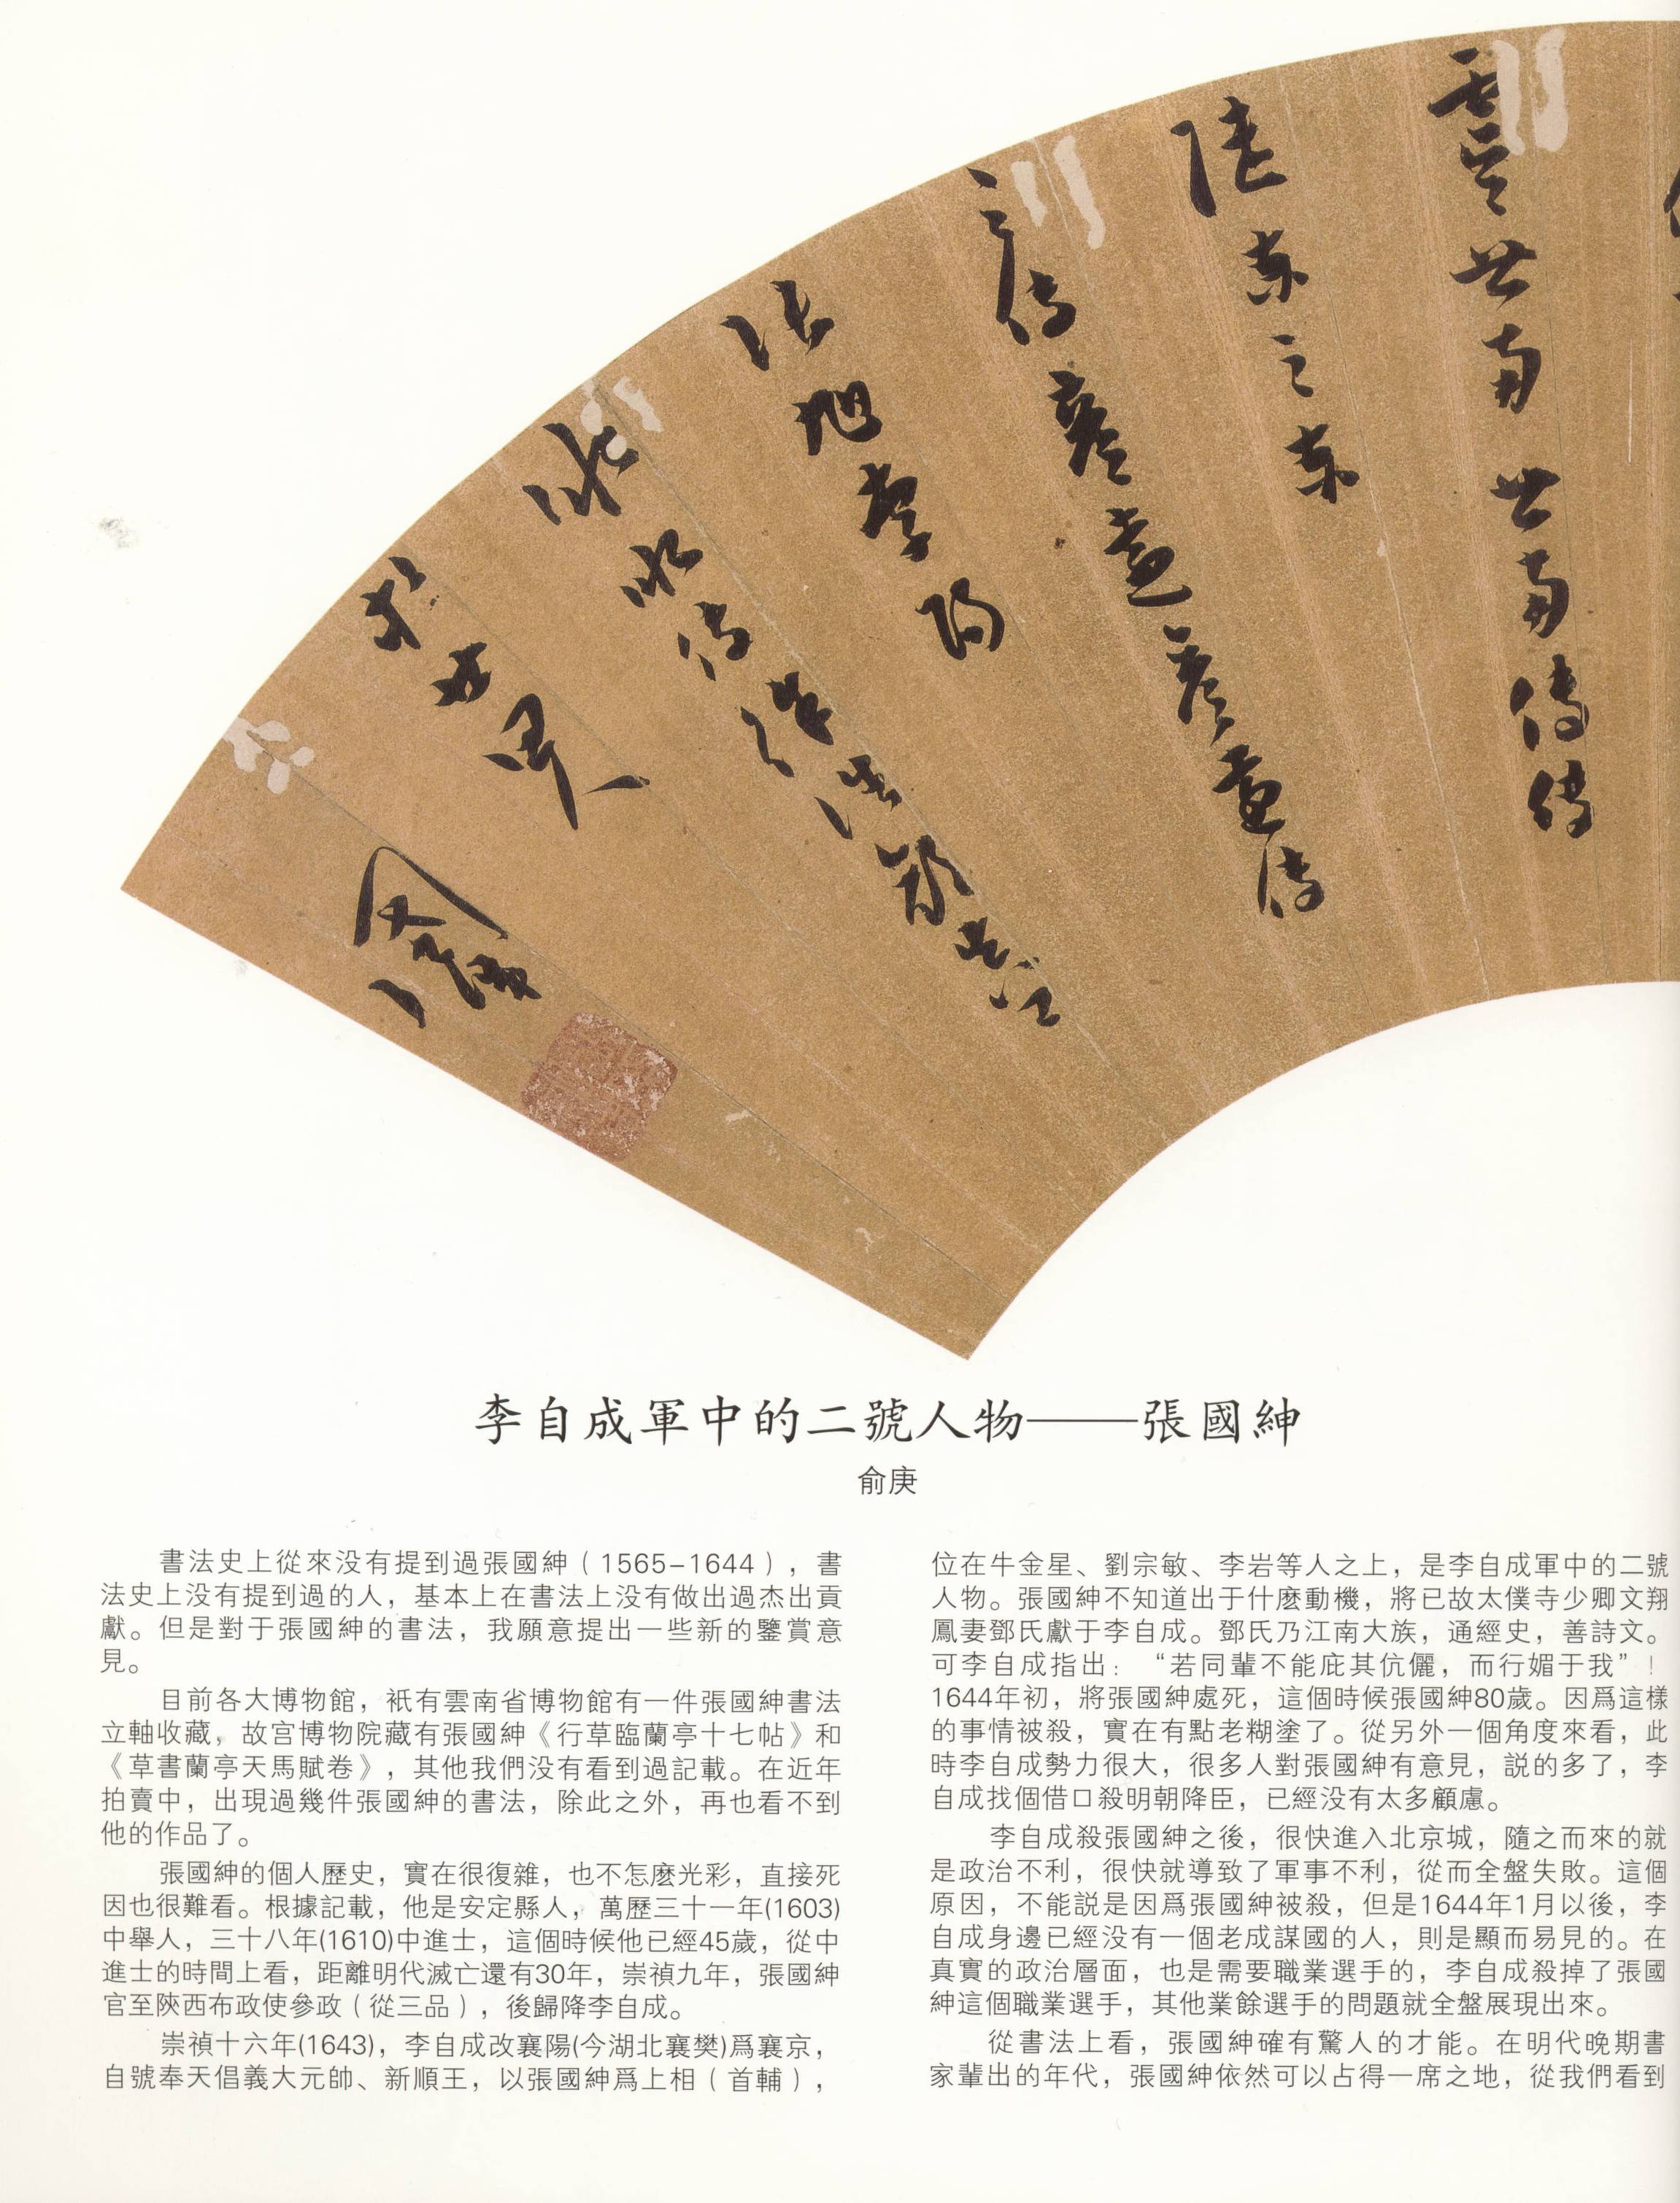 虞世南世南傳傳
陸柬之柬
之傳彥遠彥遠傳
張旭李陽
冰冰傳徐浩
國紳
李自成軍中的二號人物——張國紳
俞庚
書法史上從來没有提到過張國紳（1565-1644），書
法史上没有提到過的人，基本上在書法上没有做出過杰出貢
獻。但是對于張國紳的書法，我願意提出一些新的鑒賞意
見。
目前各大博物館，衹有雲南省博物館有一件張國紳書法
立軸收藏，故宫博物院藏有張國紳《行草臨蘭亭十七帖》和
《草書蘭亭天馬賦卷》，其他我們没有看到過記載。在近年
拍賣中，出現過幾件張國紳的書法，除此之外，再也看不到
他的作品了。
張國紳的個人歷史，實在很復雜，也不怎麽光彩，直接死
因也很難看。根據記載，他是安定縣人，萬歷三十一年(1603)
中舉人，三十八年(1610)中進士，這個時候他已經45歲，從中
進士的時間上看，距離明代滅亡還有30年，崇禎九年，張國紳
官至陝西布政使參政（從三品），後歸降李自成。
崇禎十六年(1643)，李自成改襄陽(今湖北襄樊)爲襄京，
自號奉天倡義大元帥、新順王，以張國紳爲上相（首輔），
位在牛金星、劉宗敏、李岩等人之上，是李自成軍中的二號
人物。張國紳不知道出于什麽動機，將已故太僕寺少卿文翔
鳳妻鄧氏獻于李自成。鄧氏乃江南大族，通經史，善詩文。
可李自成指出：“若同輩不能庇其伉儷，而行媚于我”！
1644年初，將張國紳處死，這個時候張國紳80歲。因爲這樣
的事情被殺，實在有點老糊塗了。從另外一個角度來看，此
時李自成勢力很大，很多人對張國紳有意見，説的多了，李
自成找個借口殺明朝降臣，已經没有太多顧慮。
李自成殺張國紳之後，很快進入北京城，隨之而來的就
是政治不利，很快就導致了軍事不利，從而全盤失敗。這個
原因，不能説是因爲張國紳被殺，但是1644年1月以後，李
自成身邊已經没有一個老成謀國的人，則是顯而易見的。在
真實的政治層面，也是需要職業選手的，李自成殺掉了張國
紳這個職業選手，其他業餘選手的問題就全盤展現出來。
從書法上看，張國紳確有驚人的才能。在明代晚期書
家輩出的年代，張國紳依然可以占得一席之地，從我們看到